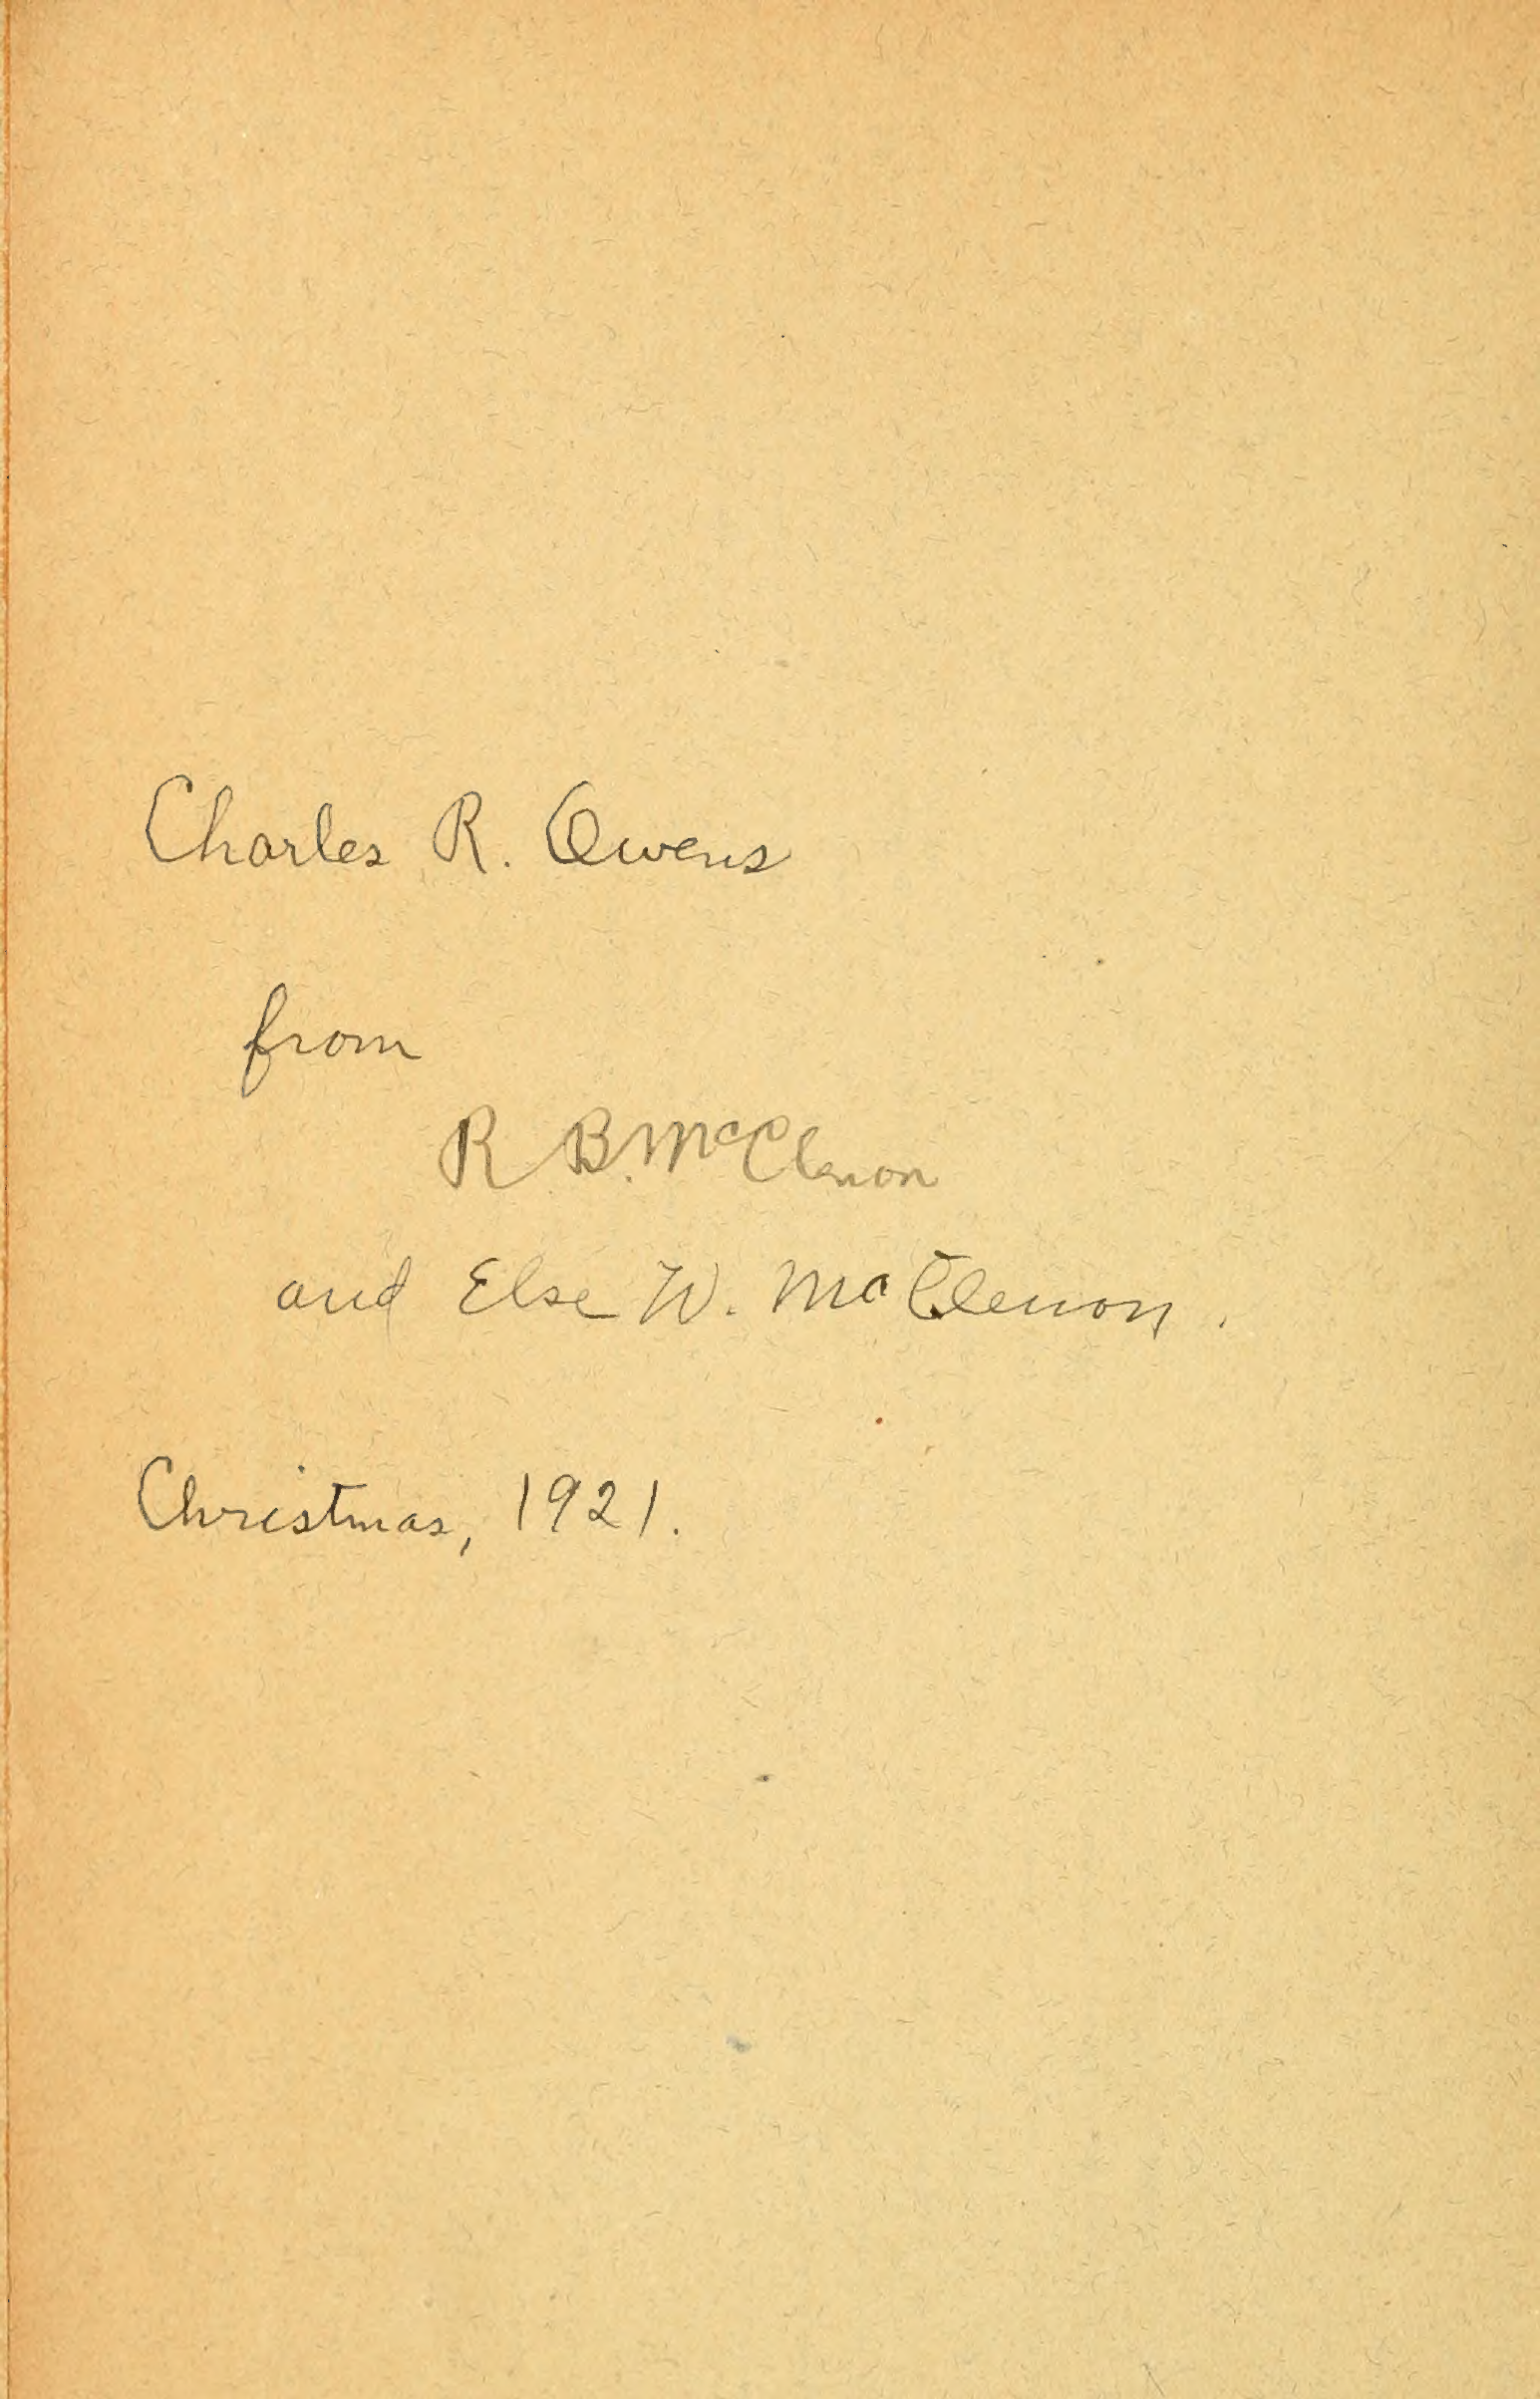 Charles R. Owens
from
R B. McClenon
and Else W. McClenon.
Christmas, 1921.